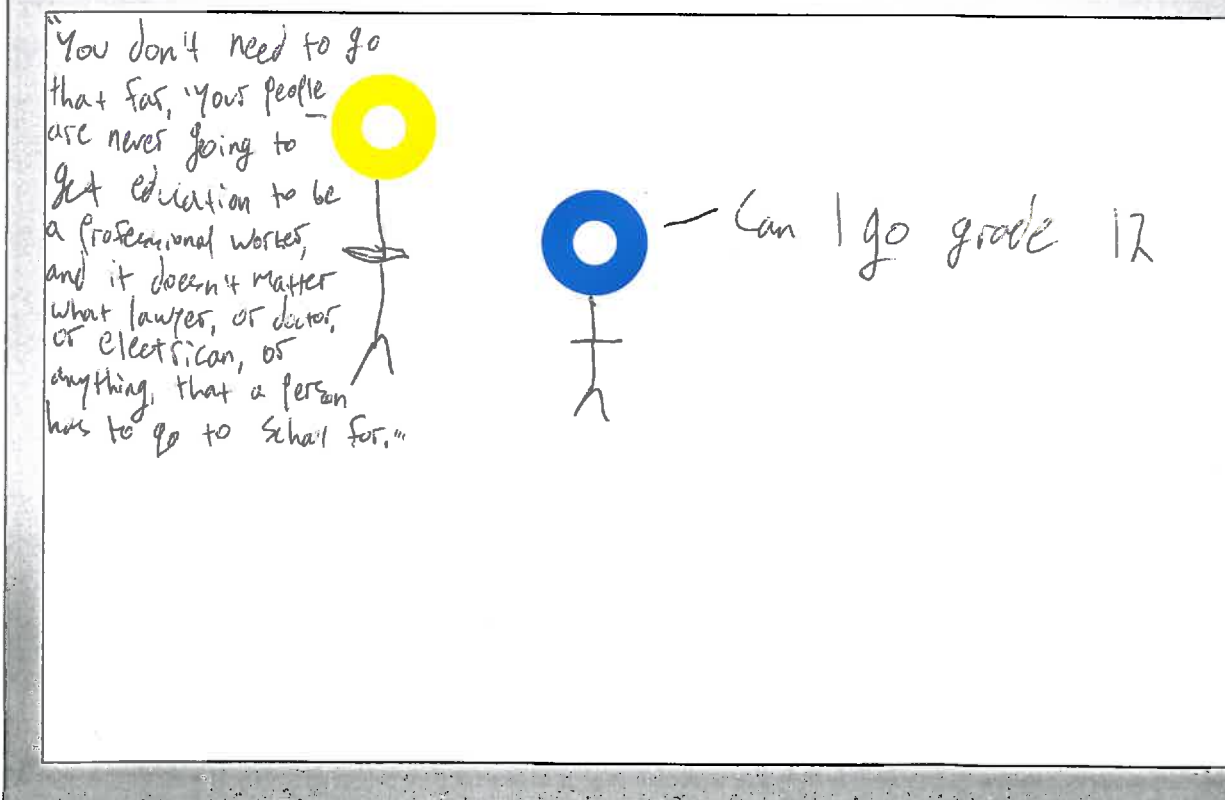 "You don't need to go
that far, "Your people
are never going to
get education to be
a professional worker,
and it doesn't matter
what lawyer, or doctor,
or electrican, or
anything, that a person
has to go to school for."
Can I go grade 12